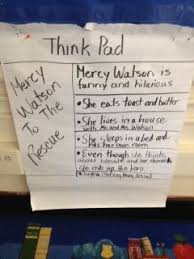 Think Pad
Mercy
Watson
To The
Rescue
Mercy Watson is
funny and hilarious
• She eats toast and butter
• She lives in a house
with Mr. and Mrs. Watson
• She sleeps in a bed and
has her own room
• Even though she thinks
about
she ends up the hero.